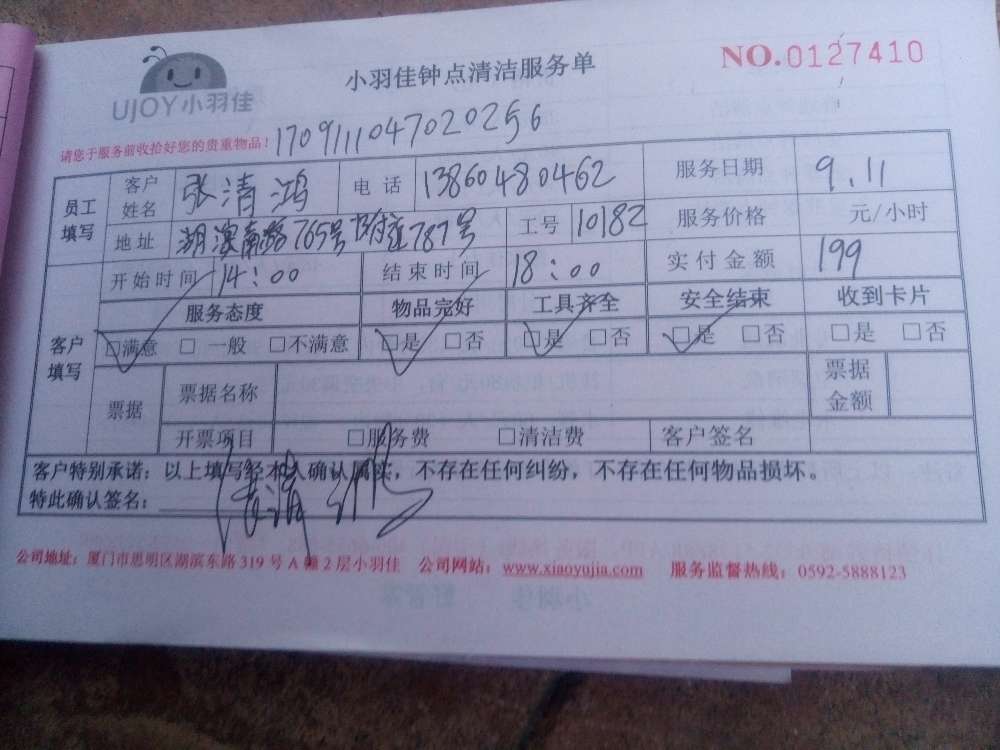 UJOY小羽佳
小羽佳钟点清洁服务单
NO.0127410
请您于服务前收拾好您的贵重物品！
1709111047020256
员工填写 客户姓名 张清鸿 电话 13860480462 服务日期 9.11
地址 湖滨南路765号 787号 工号 10182 服务价格 元/小时
开始时间 14:00 结束时间 18:00 实付金额 199
客户填写 服务态度 物品完好 工具齐全 安全结束 收到卡片
☑满意 □ 一般 □不满意 ☑是 □否 ☑是 □否 ☑是 □否 □是 □否
票据 票据名称 票据金额
开票项目 □服务费 □清洁费 客户签名
客户特别承诺：以上填写经本人确认属实，不存在任何纠纷，不存在任何物品损坏。
特此确认签名：
公司地址：厦门市思明区湖滨东路319号A幢2层小羽佳 公司网站：www.xiaoyujia.com 服务监督热线：0592-5888123